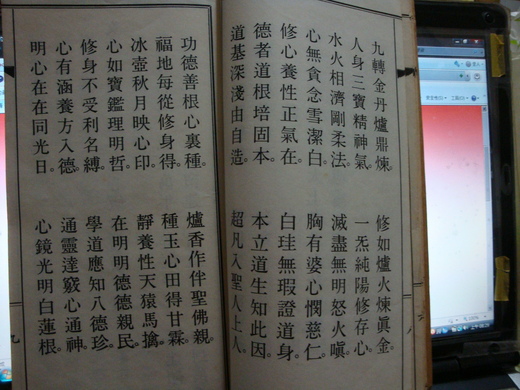 九轉金丹爐鼎煉
修如爐火煉眞金
人身三寶精神氣
一炁純陽修存心
水火相濟剛柔法
滅盡無明怒火嗔
心無貪念雪潔白
胸有婆心憫慈仁
修心養性正氣在
白珪無瑕證道身
德者道根培固本
本立道生知此因
道基深淺由自造
超凡入聖人上人
功德善根心裏種
爐香作伴聖佛親
福地每從修身得
種玉心田得甘霖
冰壺秋月映心印
靜養性天猿馬擒
心如寶鑑理明哲
在明明德德親民
修身不受利名縛
學道應知八德珍
心有涵養方入德
通靈達竅心通神
明心在在同光日
心鏡光明白蓮根
九